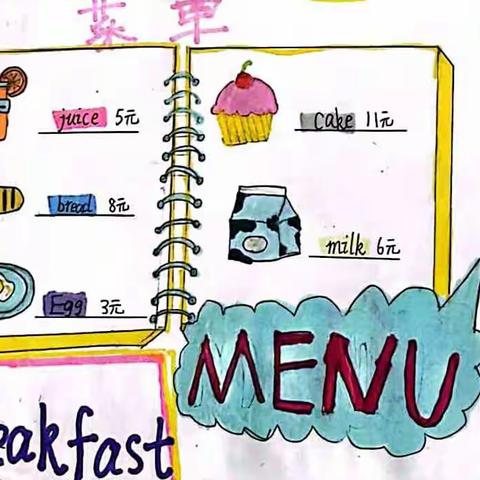 菜单
juice 5元
bread 8元
Egg 3元
cake 11元
milk 6元
MENU
eakfast